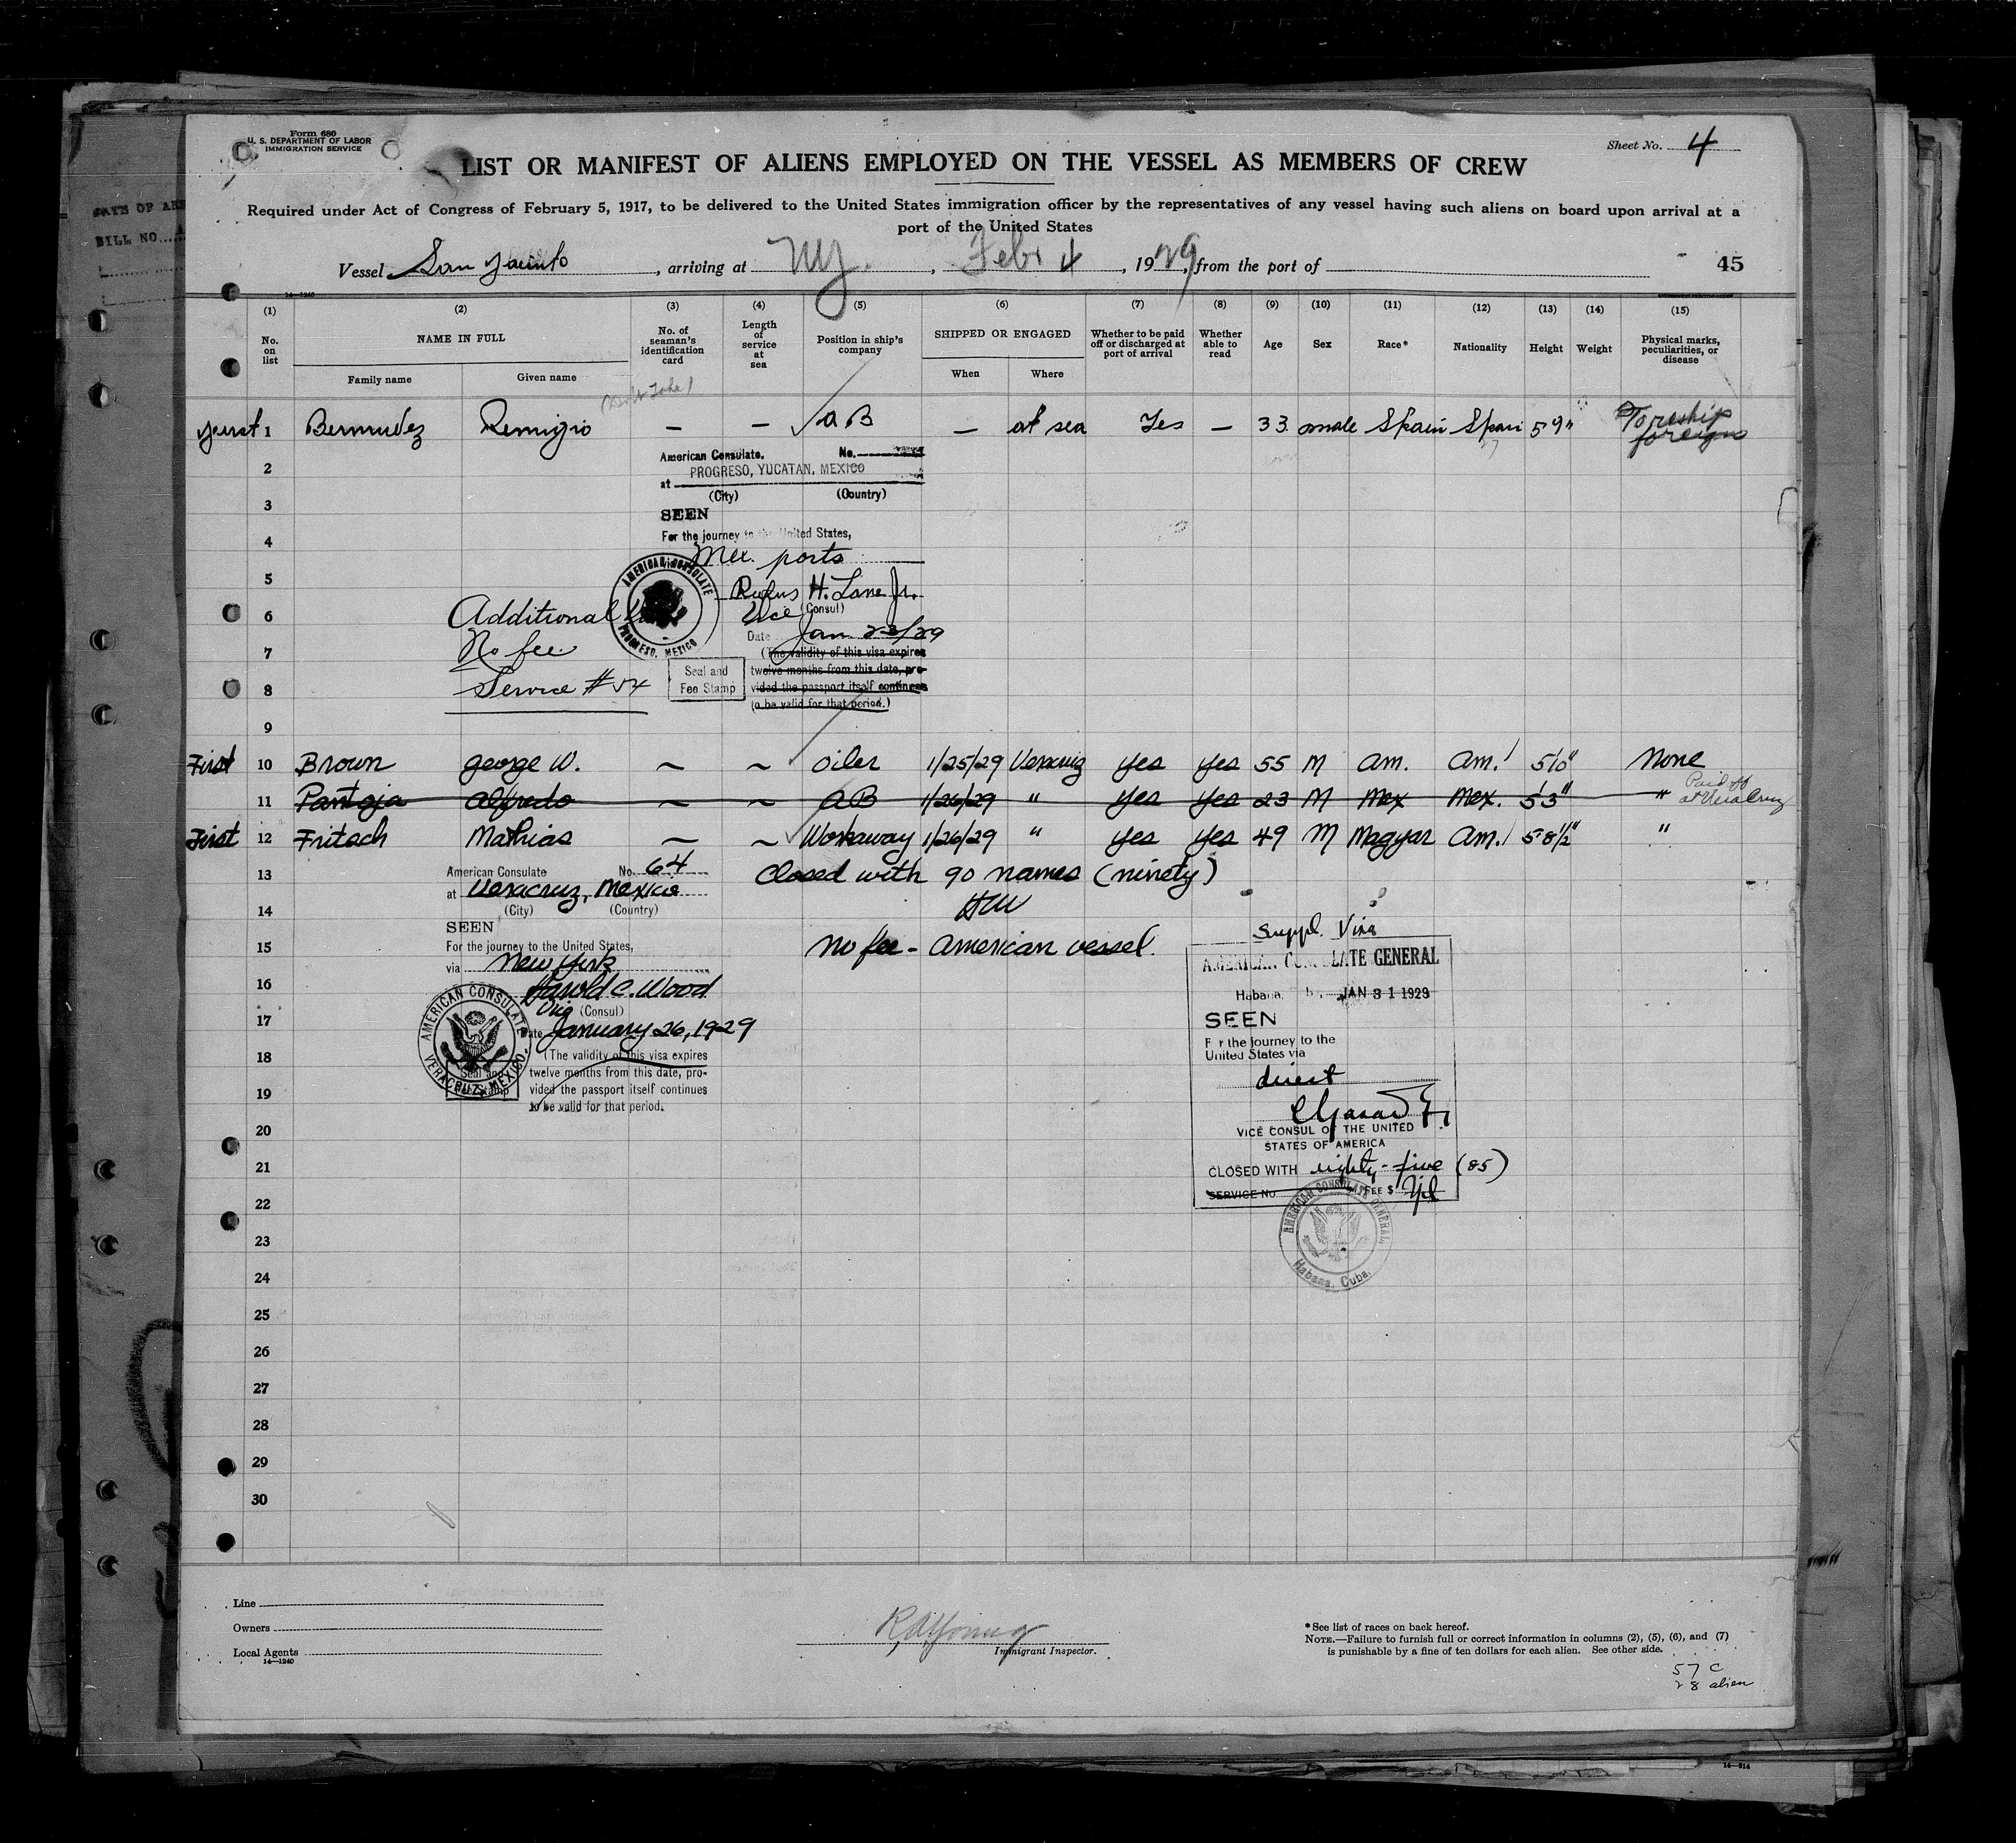 Form 680
U. S. DEPARTMENT OF LABOR
IMMIGRATION SERVICE
Sheet No. 4
LIST OR MANIFEST OF ALIENS EMPLOYED ON THE VESSEL AS MEMBERS OF CREW
Required under Act of Congress of February 5, 1917, to be delivered to the United States immigration officer by the representatives of any vessel having such aliens on board upon arrival at a
port of the United States
Vessel San Jacinto, arriving at NY., Feb. 4, 1929, from the port of
45
14—1240
(1) (2) (3) (4) (5) (6) (7) (8) (9) (10) (11) (12) (13) (14) (15)
No. on list
NAME IN FULL
Family name
Given name
No. of seaman's identification card
Length of service at sea
Position in ship's company
SHIPPED OR ENGAGED
When
Where
Whether to be paid off or discharged at port of arrival
Whether able to read
Age
Sex
Race*
Nationality
Height
Weight
Physical marks, peculiarities, or disease
1 Bermudez Remigio — — AB — at sea Yes — 33 male Spain Spain 59" To reship foreign
2
American Consulate. No.
PROGRESO, YUCATAN, MEXICO
at
(City) (Country)
3
SEEN
4
For the journey to the United States,
Mex. ports
5
AMERICAN CONSULATE
PROGRESO, MEXICO
Rufus H. Lane Jr.
6
Additional
Vice (Consul)
Date Jan 23/29
7
No fee
(The validity of this visa expires
twelve months from this date, pro-
vided the passport itself continues
to be valid for that period.)
Seal and
Fee Stamp
8
Service # 54
9
First 10 Brown George W. ~ ~ Oiler 1/25/29 Veracruz yes yes 55 M Am. Am. 5'10" None
11 Pantoja Alfredo ~ ~ AB 1/26/29 " yes yes 23 M Mex Mex. 5'3" " Paid off at Vera Cruz
First 12 Fritsch Mathias ~ ~ Workaway 1/26/29 " yes yes 49 M Magyar Am. 5-8½" "
13
American Consulate No. 64
at Veracruz, Mexico
(City) (Country)
Closed with 90 names (ninety)
HCW
14
SEEN
15
For the journey to the United States,
via New York
No fee - American vessel.
16
Harold C. Wood
Vice (Consul)
17
Date January 26, 1929
AMERICAN CONSULATE
VERACRUZ, MEXICO.
18
(The validity of this visa expires
twelve months from this date, pro-
vided the passport itself continues
to be valid for that period.
Seal and
Fee Stamp
19
Suppl. Visa
AMERICAN CONSULATE GENERAL
Habana, JAN 31 1929
SEEN
For the journey to the
United States via
direct
VICE CONSUL OF THE UNITED
STATES OF AMERICA
CLOSED WITH eighty-five (85)
SERVICE No. FEE $
AMERICAN CONSULATE GENERAL,
Habana, Cuba.
20
21
22
23
24
25
26
27
28
29
30
Line
Owners
Local Agents
14—1240
Immigrant Inspector.
*See list of races on back hereof.
NOTE.—Failure to furnish full or correct information in columns (2), (5), (6), and (7)
is punishable by a fine of ten dollars for each alien. See other side.
57 C
28 alien
14—314